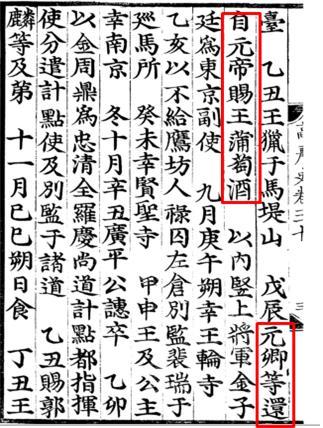 臺 乙丑王獵于馬堤山 戊辰元卿等還
自元帝賜王蒲萄酒 以內豎上將軍金子
廷爲東京副使 九月庚午朔幸王輪寺
乙亥以不給鷹坊人祿囚左倉別監裴瑞于
廵馬所 癸未幸賢聖寺 甲申王及公主
幸南京 冬十月辛丑廣平公譓卒 乙卯
以金周鼎爲忠清全羅慶尚道計點都指揮
使分遣計點使及別監于諸道 乙丑賜郭
麟等及第 十一月己巳朔日食 丁丑王